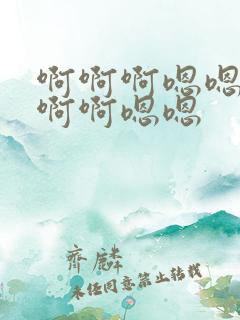 啊啊啊嗯嗯
啊啊嗯嗯
齊麟
未经同意禁止转载